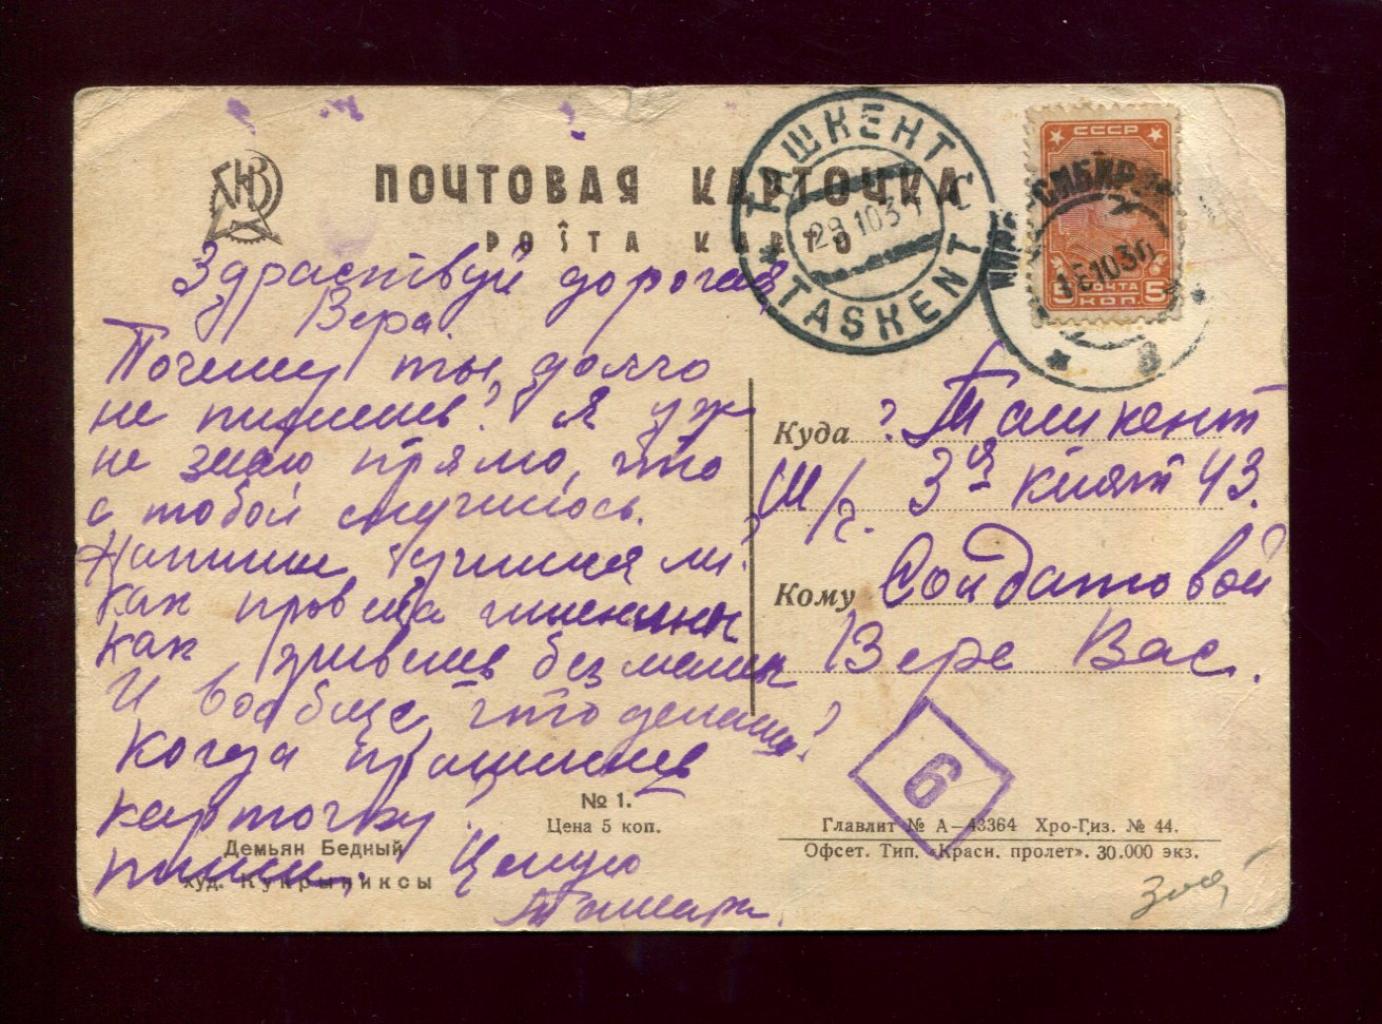 ПОЧТОВАЯ КАРТОЧКА
POŜTA KARTO
ТАШКЕНТ
29.10.34
TASKENT
СССР
ПОЧТА
5 КОП. 5
Здраствуй дорогая
Вера.
Почему ты, долго
не пишешь? Я уж
не знаю прямо, что
с тобой случилось.
Напиши учишся ли?
как провела именины
как живешь без мамы
И вообще, что делаешь?
Когда пришлешь
карточку?
пиши. Целую
Тамара.
Куда г. Ташкент
3я 43.
Кому Солдатовой
Вере Вас.
6
№ 1.
Цена 5 коп.
Демьян Бедный
худ. Кукрыниксы
Главлит № А—43364 Хро-Гиз. № 44.
Офсет. Тип. «Красн. пролет». 30.000 экз.